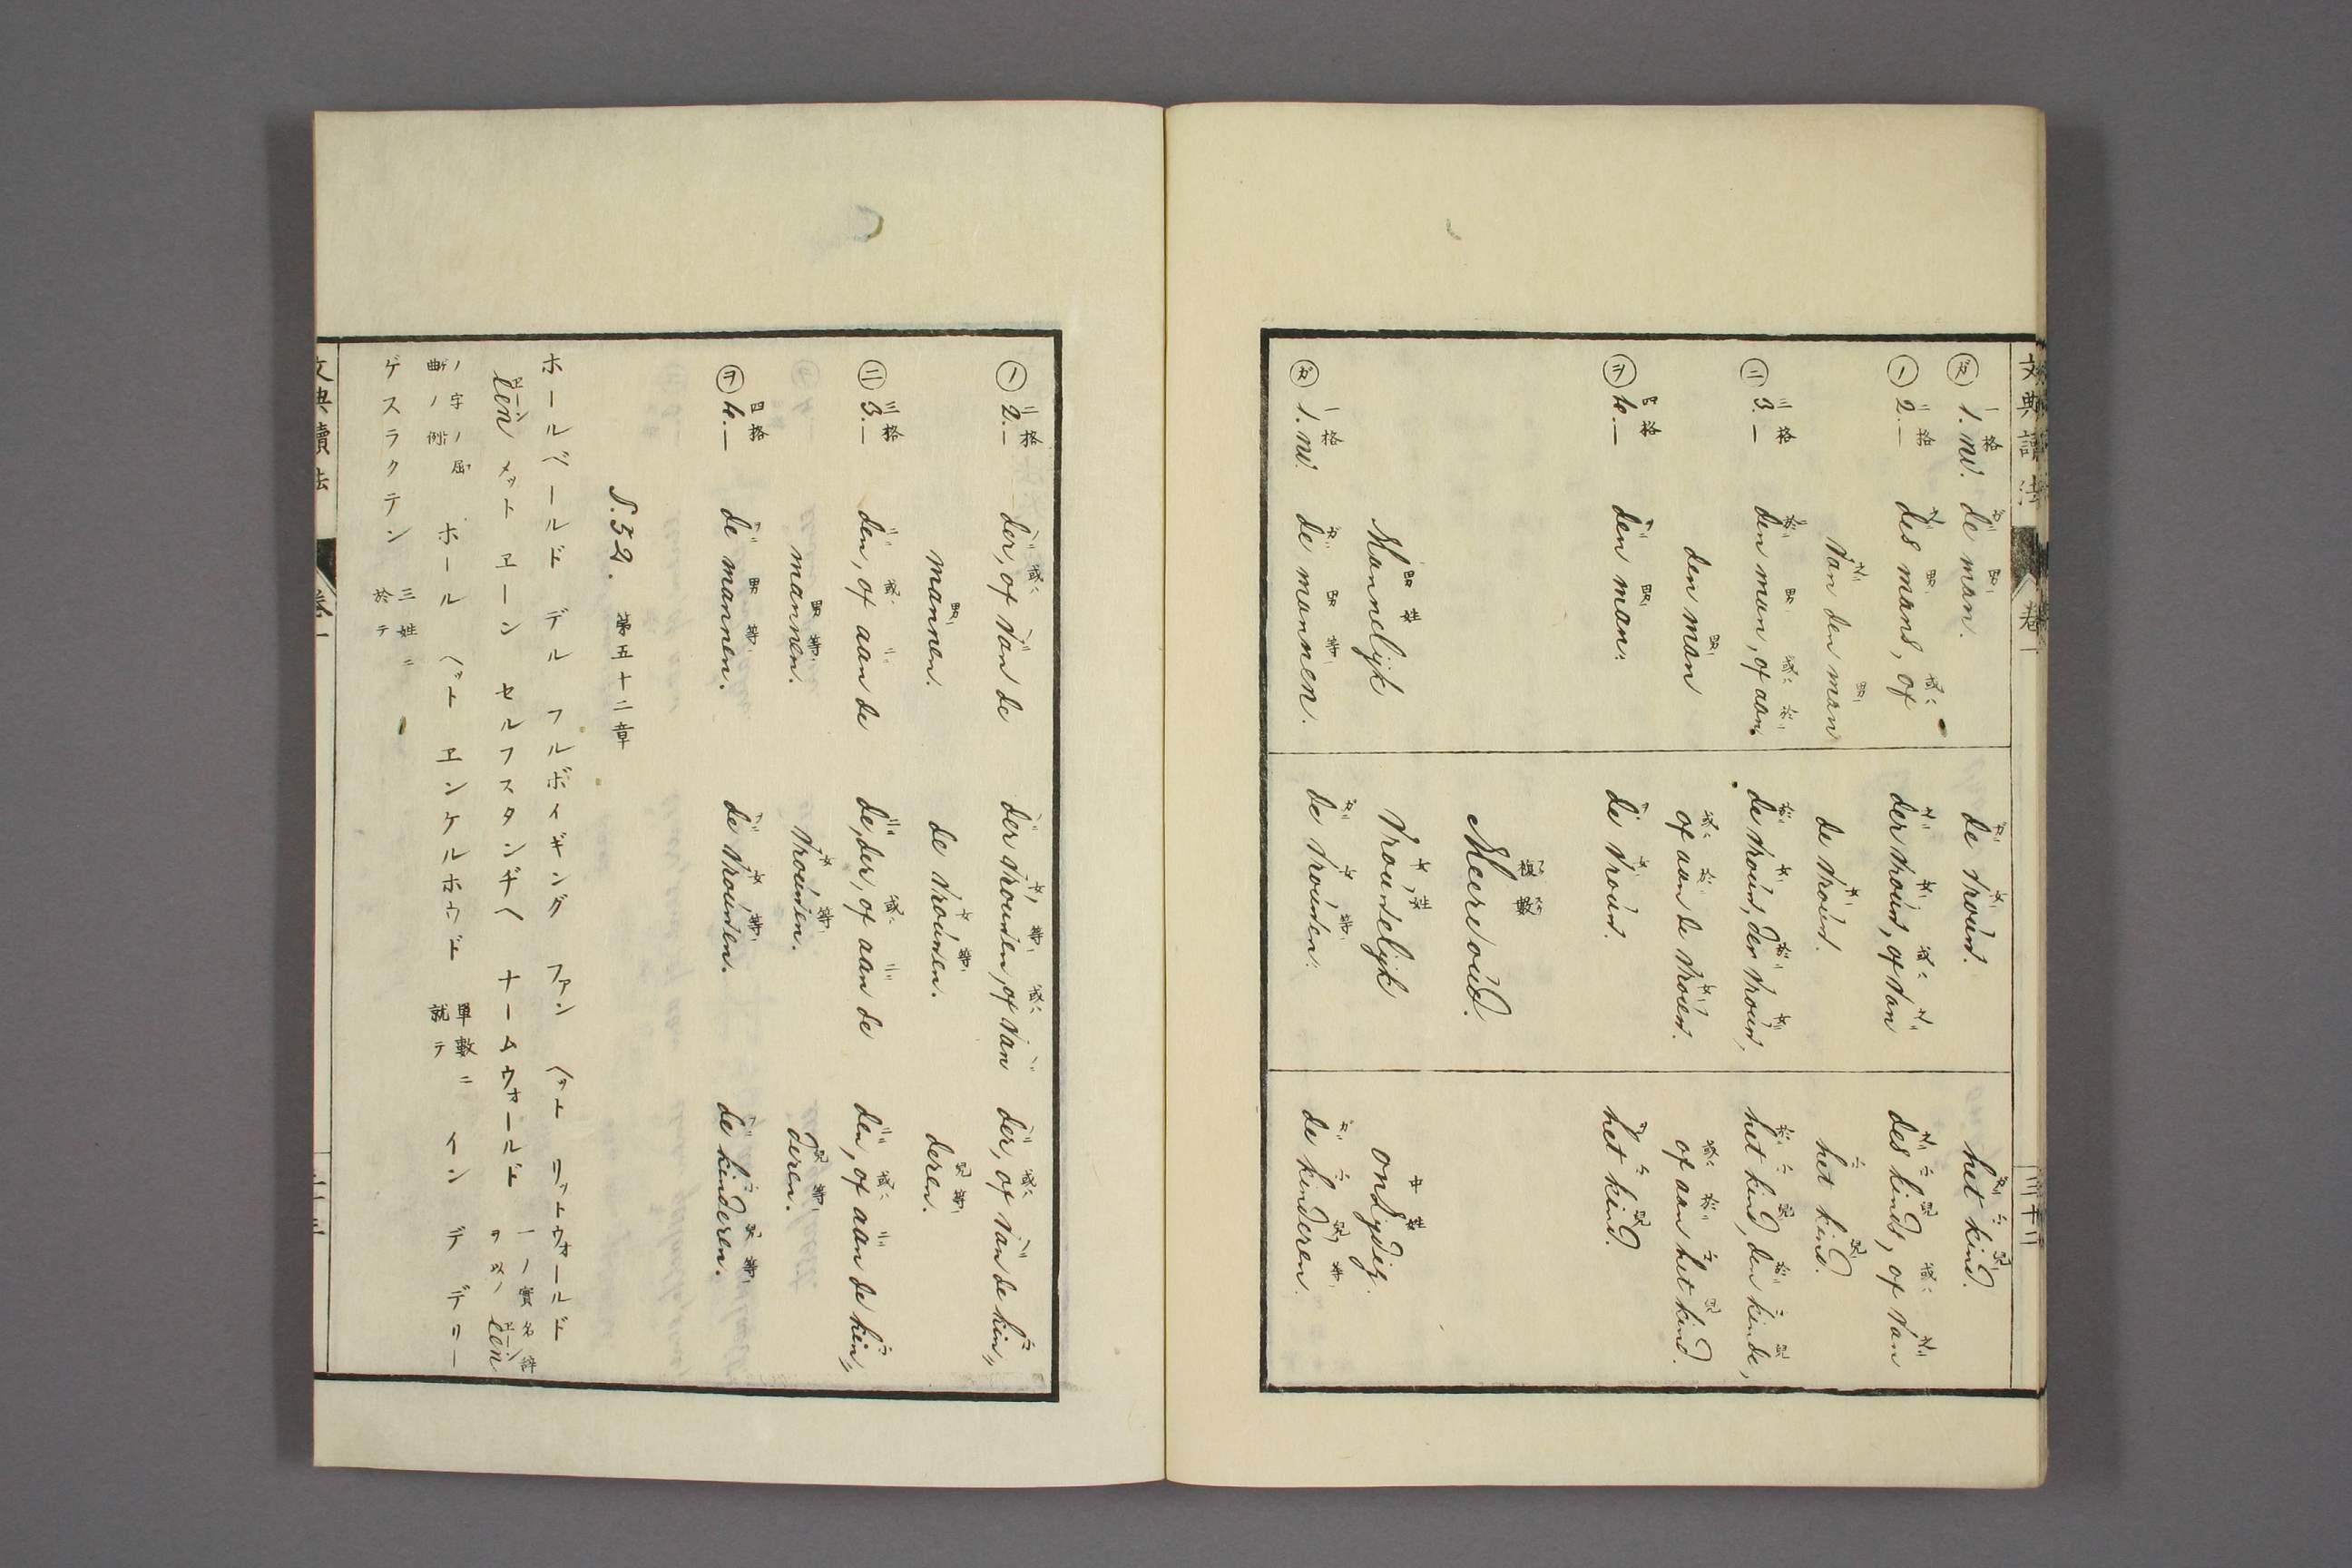 文典讀法 卷一 三十二
㋕ 一格 1. nv. de man. de vrouw. het kind.
㋨ 二格 2.— des mans, of der vrouw, of van des kinds, of van
van den man de vrouw. het kind.
㊁ 三格 3.— den man, of aan de vrouw, der vrouw, het kind, den kinde,
den man of aan de vrouw. of aan het kind.
㋾ 四格 4.— den man. de vrouw. het kind.
複數 Meervoud.
男姓 Mannelijk 女姓 Vrouwelijk 中姓 onzydig.
㋕ 一格 1. nv. de mannen. de vrouwen. de kinderen.
二格 2.— der, of van de der vrouwen, of van der, of van de kin„
mannen. de vrouwen. deren.
㊁ 三格 3.— den, of aan de de, der, of aan de den, of aan de kin„
mannen. vrouwen. deren.
㋾ 四格 4.— de mannen. de vrouwen. de kinderen.
S. 52. 第五十二章
ホールベールド デル フルボイギング ファン ヘット リットウォールド
een メット エーン セルフスタンヂヘ ナームウォールド 一ノ實名辭ヲ以ノ een
ノ字ノ屈曲ノ例 ホール ヘット エンケルホウド 單數ニ就テ イン デ デリー
ゲスラクテン 三姓ニ於テ
文典讀法 卷一